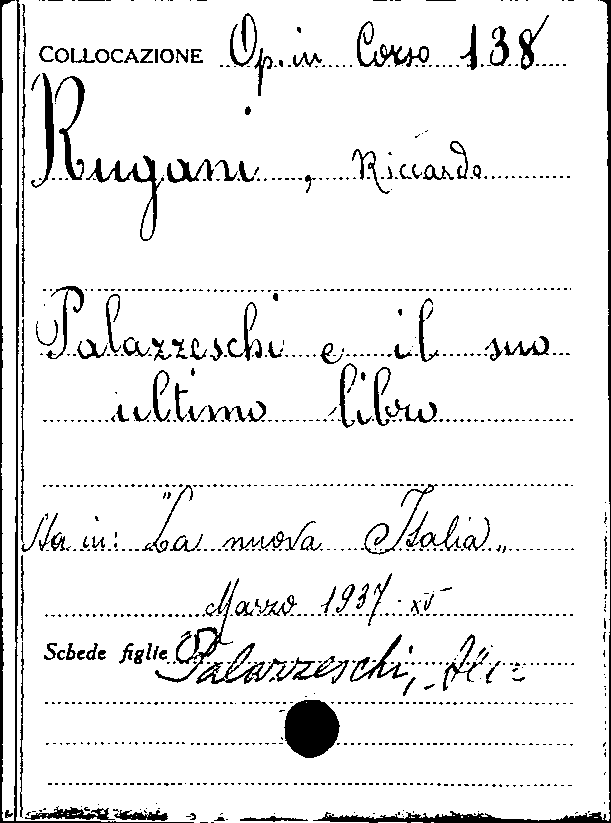 COLLOCAZIONE Op. in Corso 138
Rugani, Riccardo
Palazzeschi e il suo
ultimo libro
Sta in: "La nuova Italia„
Marzo 1937-XV
Schede figlie Palazzeschi,